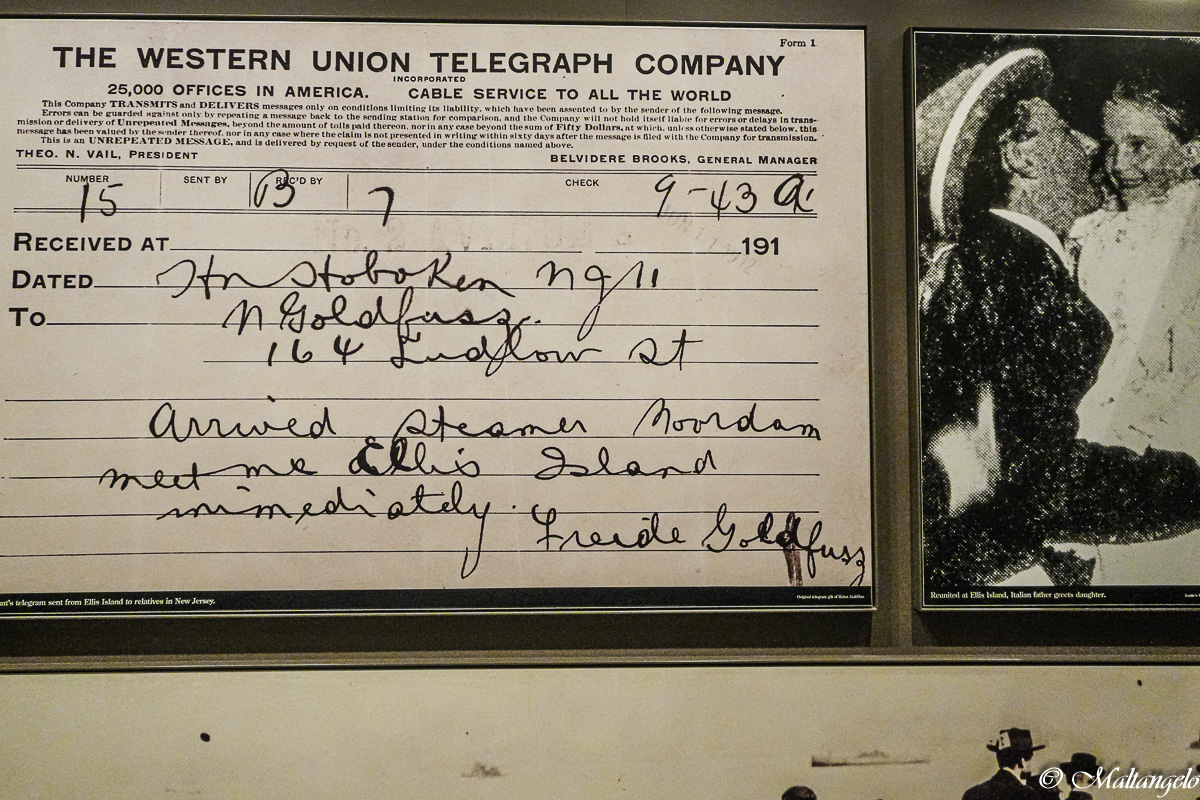 Form 1
THE WESTERN UNION TELEGRAPH COMPANY
INCORPORATED
25,000 OFFICES IN AMERICA. CABLE SERVICE TO ALL THE WORLD
This Company TRANSMITS and DELIVERS messages only on conditions limiting its liability, which have been assented to by the sender of the following message.
Errors can be guarded against only by repeating a message back to the sending station for comparison, and the Company will not hold itself liable for errors or delays in trans-
mission or delivery of Unrepeated Messages, beyond the amount of tolls paid thereon, nor in any case beyond the sum of Fifty Dollars, at which, unless otherwise stated below, this
message has been valued by the sender thereof, nor in any case where the claim is not presented in writing within sixty days after the message is filed with the Company for transmission.
This is an UNREPEATED MESSAGE, and is delivered by request of the sender, under the conditions named above.
THEO. N. VAIL, PRESIDENT BELVIDERE BROOKS, GENERAL MANAGER
NUMBER SENT BY REC'D BY CHECK
15 B 7 9-43 a
RECEIVED AT 191
DATED Hoboken NJ 11
TO N Goldfusz.
164 Ludlow St
Arrived Steamer Noordam
meet me Ellis Island
immediately. Freide Goldfusz
nt's telegram sent from Ellis Island to relatives in New Jersey.
Original telegram gift of
Reunited at Ellis Island, Italian father greets daughter.
© Maltangelo